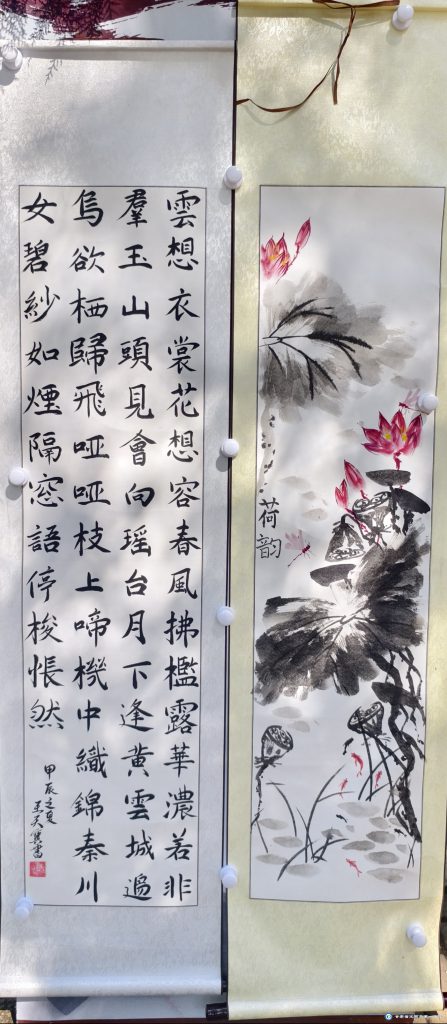 雲想衣裳花想容春風拂檻露華濃若非
羣玉山頭見會向瑶台月下逢黄雲城邉
烏欲栖歸飛哑哑枝上啼機中織錦秦川
女碧紗如煙隔窓語停梭悵然
甲辰之夏
荷韵